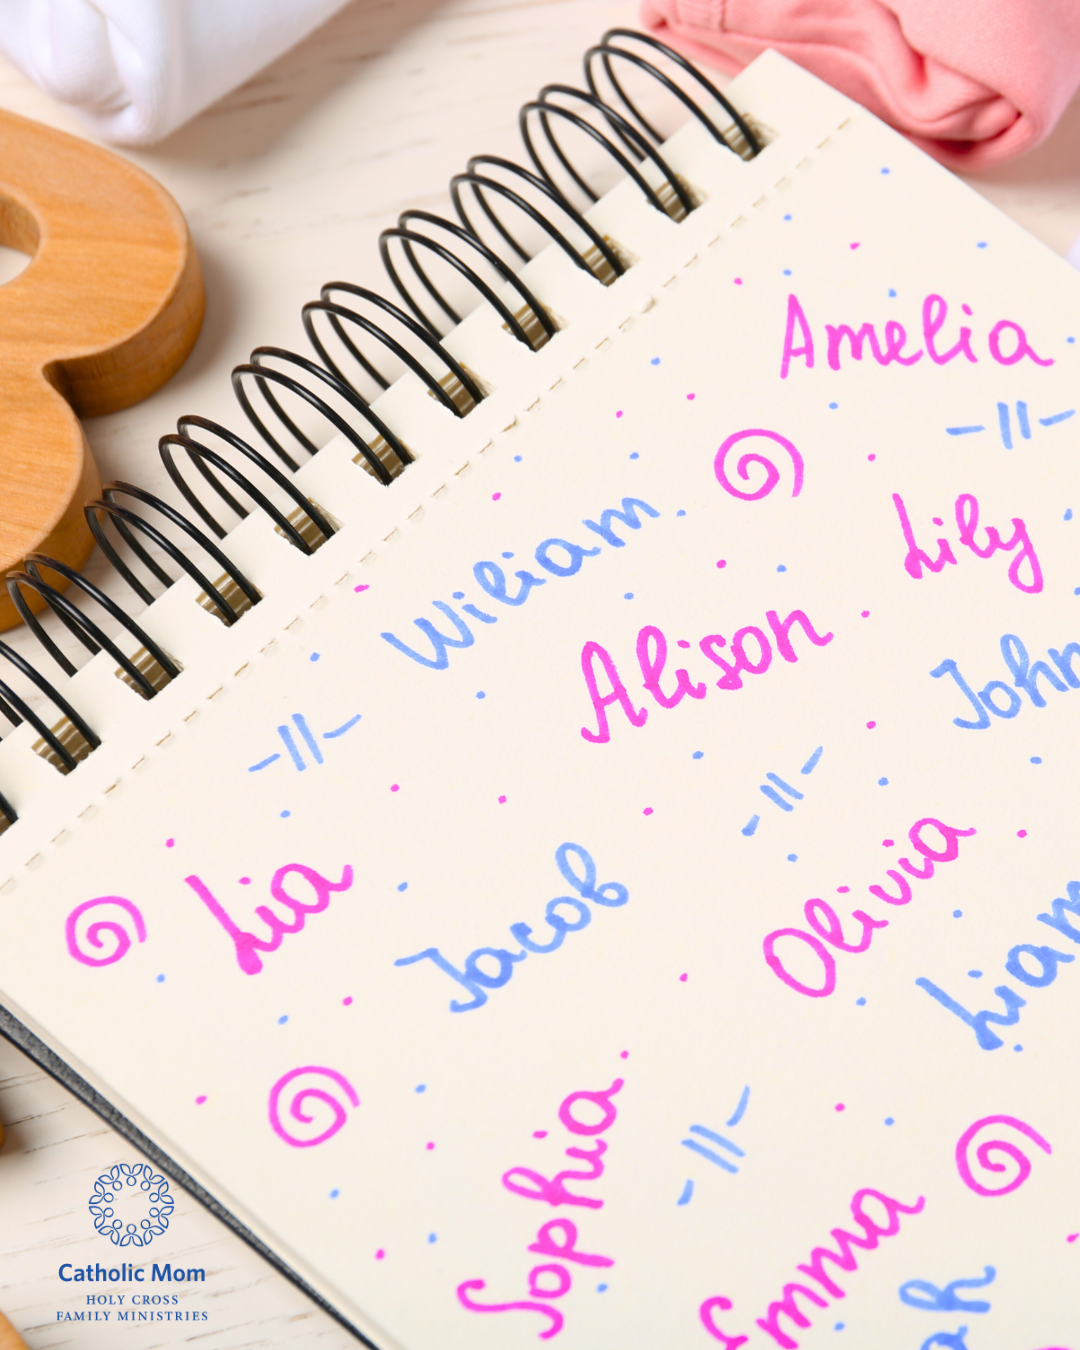 Amelia
Lily
Wiliam
Alison
John
Lia
Jacob
Olivia
Liam
Sophia
Emma
Catholic Mom
HOLY CROSS
FAMILY MINISTRIES